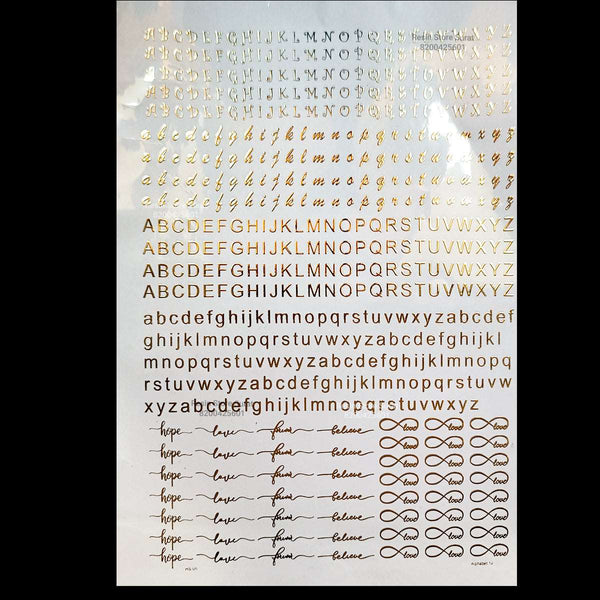 Resin Store Surat
8200425601
ABCDEFGHIJKLMNOPQRSTUVWXYZ
ABCDEFGHIJKLMNOPQRSTUVWXYZ
ABCDEFGHIJKLMNOPQRSTUVWXYZ
ABCDEFGHIJKLMNOPQRSTUVWXYZ
abcdefghijklmnopqrstuvwxyz
abcdefghijklmnopqrstuvwxyz
abcdefghijklmnopqrstuvwxyz
abcdefghijklmnopqrstuvwxyz
ABCDEFGHIJKLMNOPQRSTUVWXYZ
ABCDEFGHIJKLMNOPQRSTUVWXYZ
ABCDEFGHIJKLMNOPQRSTUVWXYZ
ABCDEFGHIJKLMNOPQRSTUVWXYZ
abcdefghijklmnopqrstuvwxyzabcdef
ghijklmnopqrstuvwxyzabcdefghijkl
mnopqrstuvwxyzabcdefghijklmnopq
rstuvwxyzabcdefghijklmnopqrstuvw
xyzabcdefghijklmnopqrstuvwxyz
Resin Store Surat
8200425601
love love love
hope love believe love love love
hope love believe love love love
hope love believe love love love
hope love believe love love love
hope love believe love love love
hope love believe love love love
hope love believe love love love